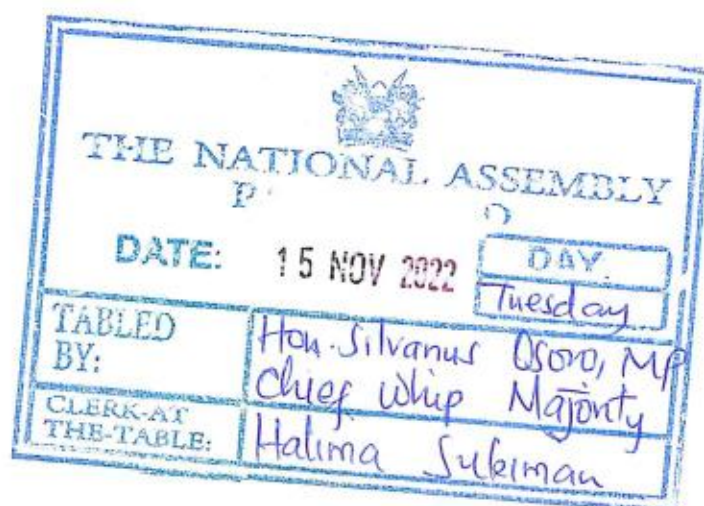 THE NATIONAL ASSEMBLY
DATE: 15 NOV 2022
DAY.
Tuesday
TABLED BY:
Hon. Silvanus Osoro, MP
Chief Whip Majority
CLERK-AT THE-TABLE:
Halima